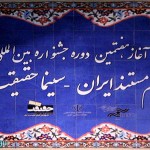 آغاز هفتمین دوره جشنواره بین‌المللی
م مستند ایران - سینما حقیقت